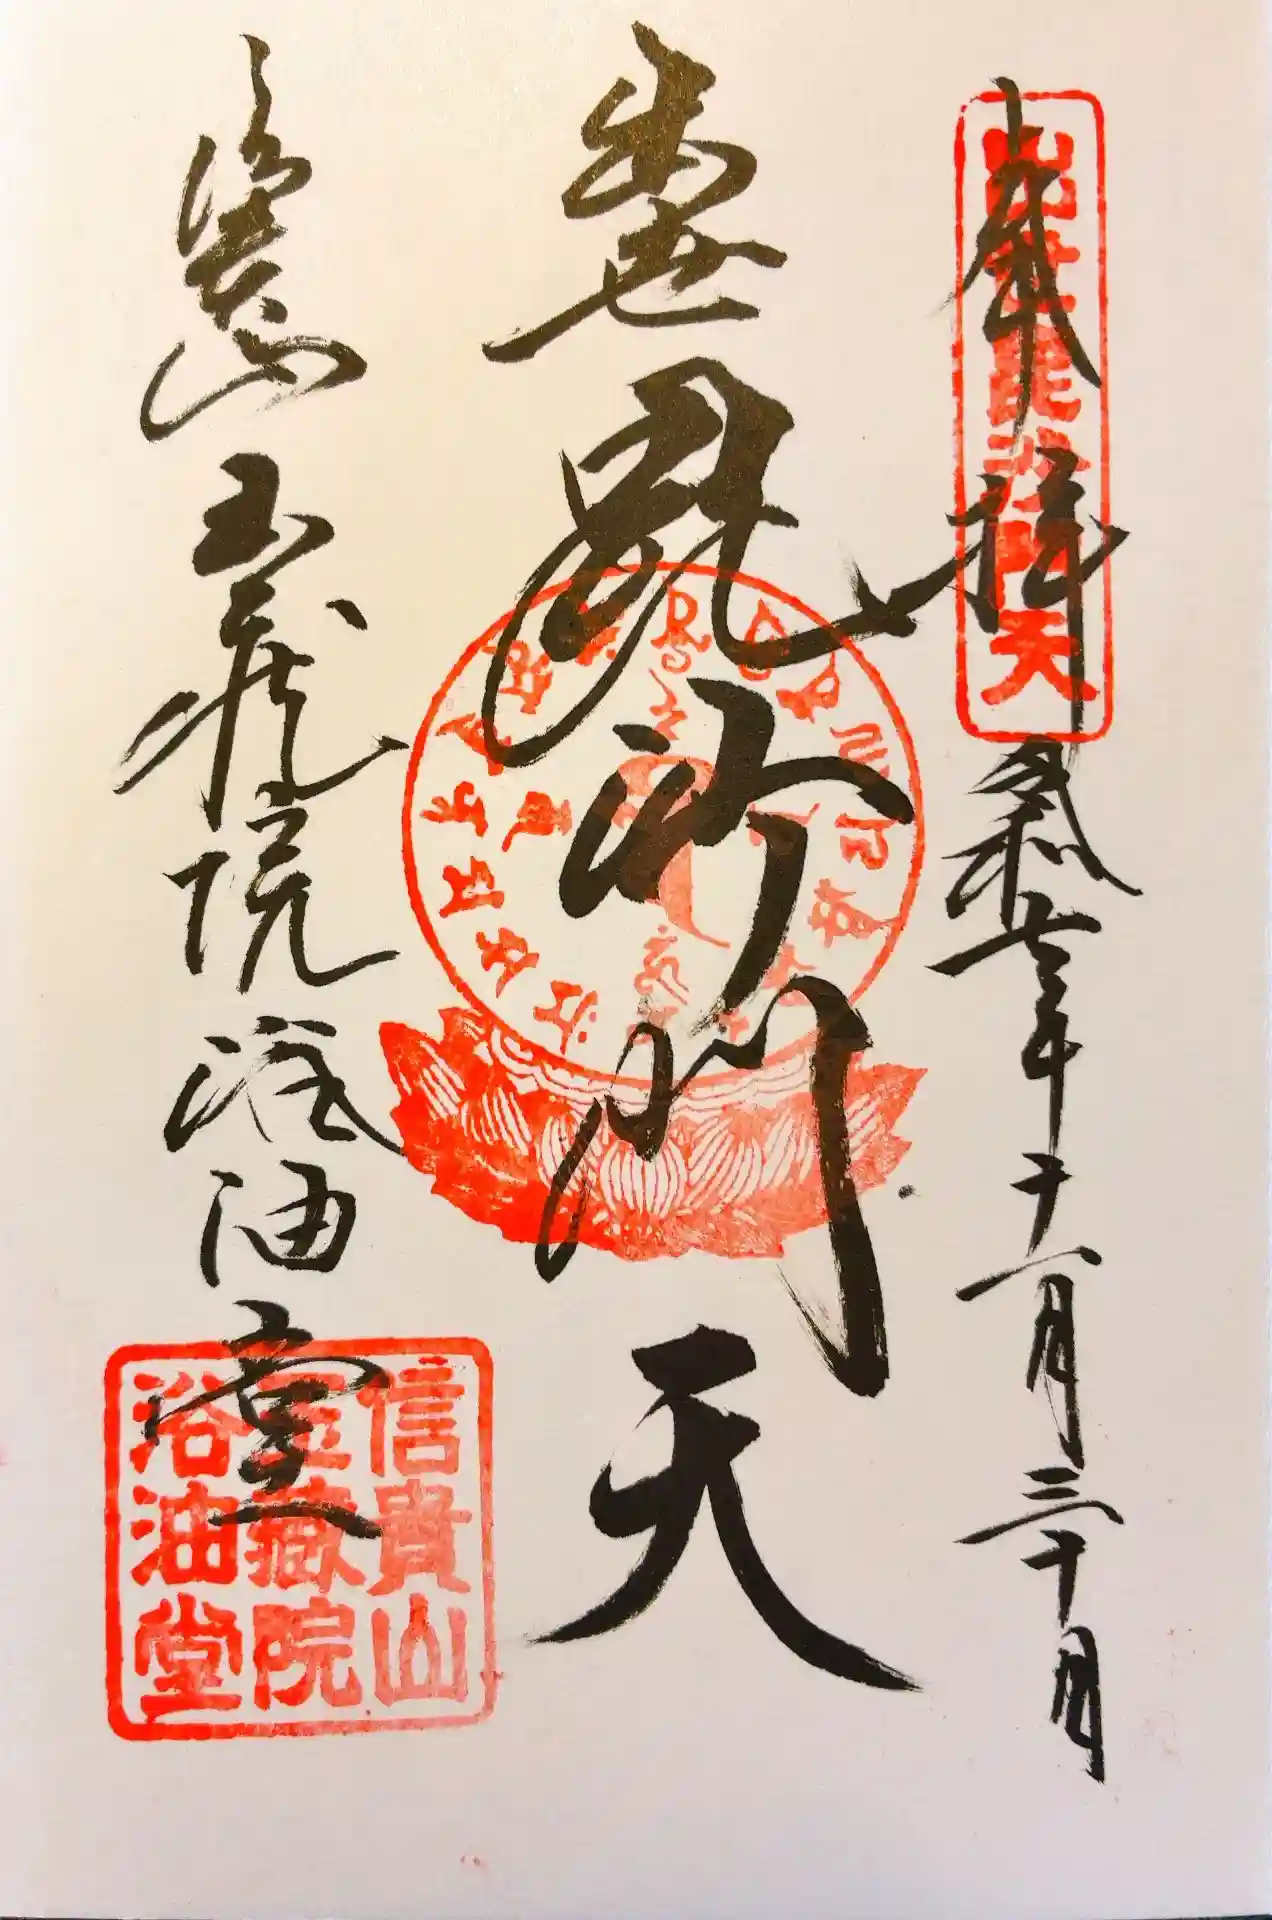 奉拝
令和六年十一月三十日
出世毘沙門天
出世毘沙門天
信貴山玉蔵院浴油堂
信貴山
玉蔵院
浴油堂